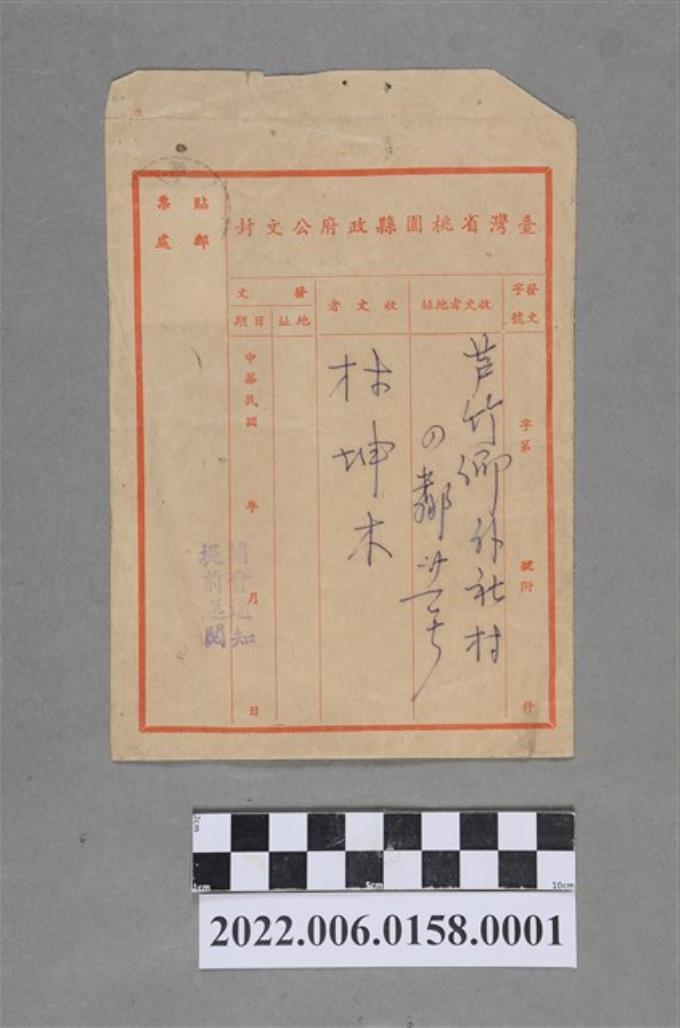 臺灣省桃園縣政府公文封
發文字號
字第
號附
件
收文者地址
芦竹鄉外社村
の鄰廿一号
收文者
林坤木
發文
地址
日期
中華民國
年
月
日
貼郵票處
開會通知
提前送閱
2cm
1cm
5cm
10cm
2022.006.0158.0001